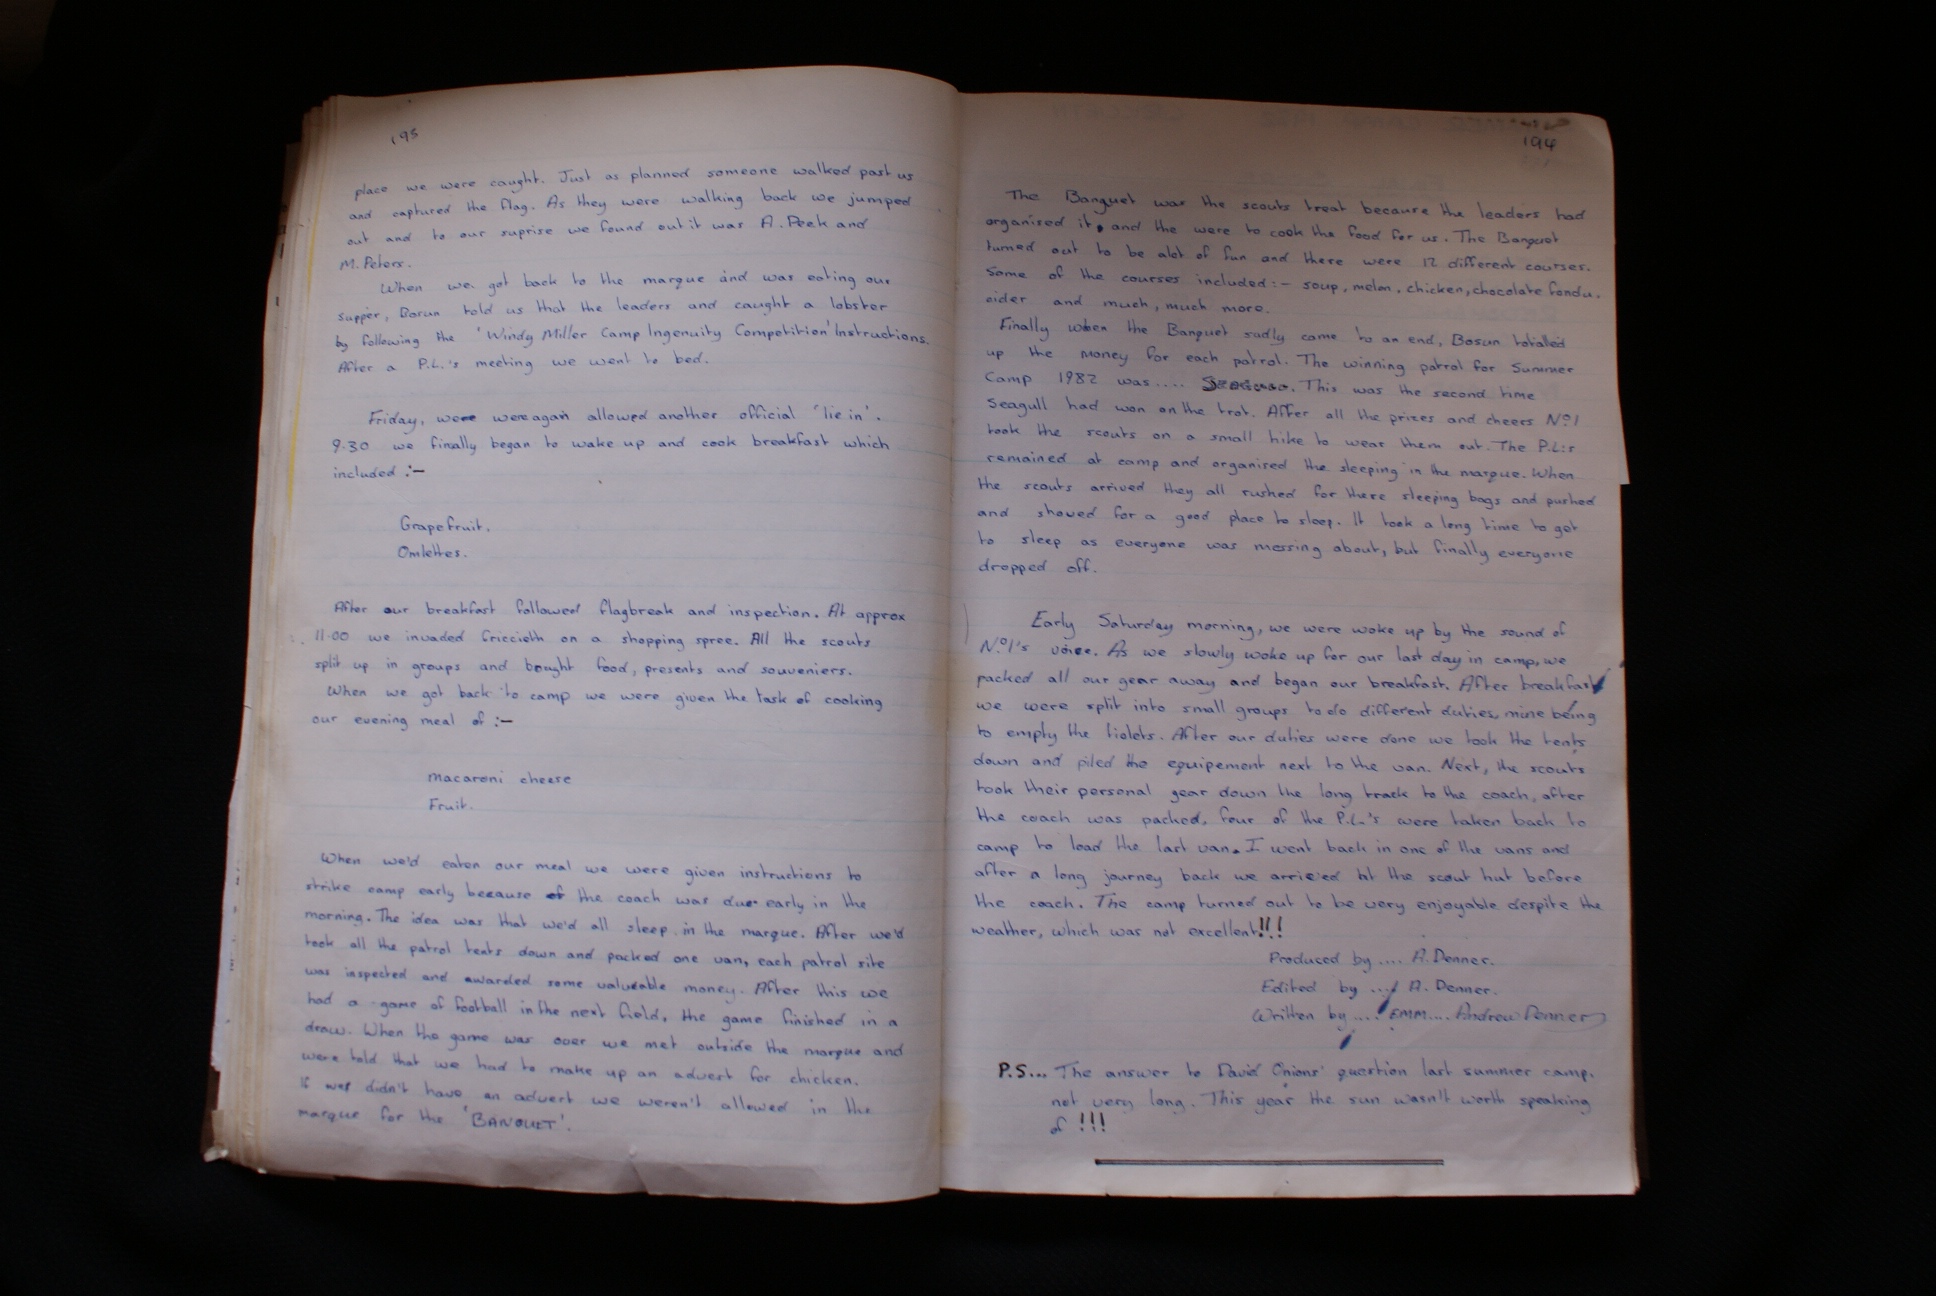 195
place we were caught. Just as planned someone walked past us
and captured the flag. As they were walking back we jumped
out and to our suprise we found out it was A. Peek and
M. Peters.
When we got back to the marque and was eating our
supper, Bosun told us that the leaders and caught a lobster
by following the 'Windy Miller Camp Ingenuity Competition' Instructions.
After a P.L.'s meeting we went to bed.
Friday, were were again allowed another official 'lie in'.
9.30 we finally began to wake up and cook breakfast which
included :-
Grapefruit.
Omlettes.
After our breakfast followed flagbreak and inspection. At approx
11.00 we invaded Criccieth on a shopping spree. All the scouts
split up in groups and bought food, presents and souveniers.
When we got back to camp we were given the task of cooking
our evening meal of :-
Macaroni cheese
Fruit.
When we'd eaten our meal we were given instructions to
strike camp early because of the coach was due early in the
morning. The idea was that we'd all sleep in the marque. After we'd
took all the patrol tents down and packed one van, each patrol site
was inspected and awarded some valuable money. After this we
had a game of football in the next field, the game finished in a
draw. When the game was over we met outside the marque and
were told that we had to make up an advert for chicken.
If we didn't have an advert we weren't allowed in the
marque for the 'BANQUET'.
194
The Banquet was the scouts treat because the leaders had
organised it, and the were to cook the food for us. The Banquet
turned out to be alot of fun and there were 12 different courses.
Some of the courses included :- soup, melon, chicken, chocolate fondu,
cider and much, much more.
Finally when the Banquet sadly came to an end, Bosun totalled
up the money for each patrol. The winning patrol for Summer
Camp 1982 was .... This was the second time
Seagull had won on the trot. After all the prizes and cheers No1
took the scouts on a small hike to wear them out. The P.L.s
remained at camp and organised the sleeping in the marque. When
the scouts arrived they all rushed for there sleeping bags and pushed
and shoved for a good place to sleep. It took a long time to get
to sleep as everyone was messing about, but finally everyone
dropped off.
Early Saturday morning, we were woke up by the sound of
No1's voice. As we slowly woke up for our last day in camp, we
packed all our gear away and began our breakfast. After breakfast
we were split into small groups to do different duties, mine being
to empty the tiolets. After our duties were done we took the tents
down and piled the equipement next to the van. Next, the scouts
took their personal gear down the long track to the coach, after
the coach was packed, four of the P.L.'s were taken back to
camp to load the last van. I went back in one of the vans and
after a long journey back we arrived at the scout hut before
the coach. The camp turned out to be very enjoyable despite the
weather, which was not excellent!!!
Produced by .... A. Denner.
Edited by .... A. Denner.
Written by .... EMM.... Andrew Denner
P.S... The answer to David Onions' question last summer camp.
not very long. This year the sun wasn't worth speaking
of !!!